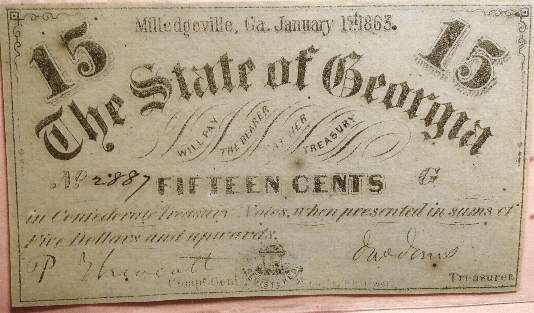 15 Milledgeville, Ga. January 1st 1863. 15
The State of Georgia
WILL PAY THE BEARER AT HER TREASURY
No 2887 FIFTEEN CENTS G
in Confederate Treasury Notes, when presented in sums of
Five Dollars and upwards.
P
Compt. Genl. Treasurer